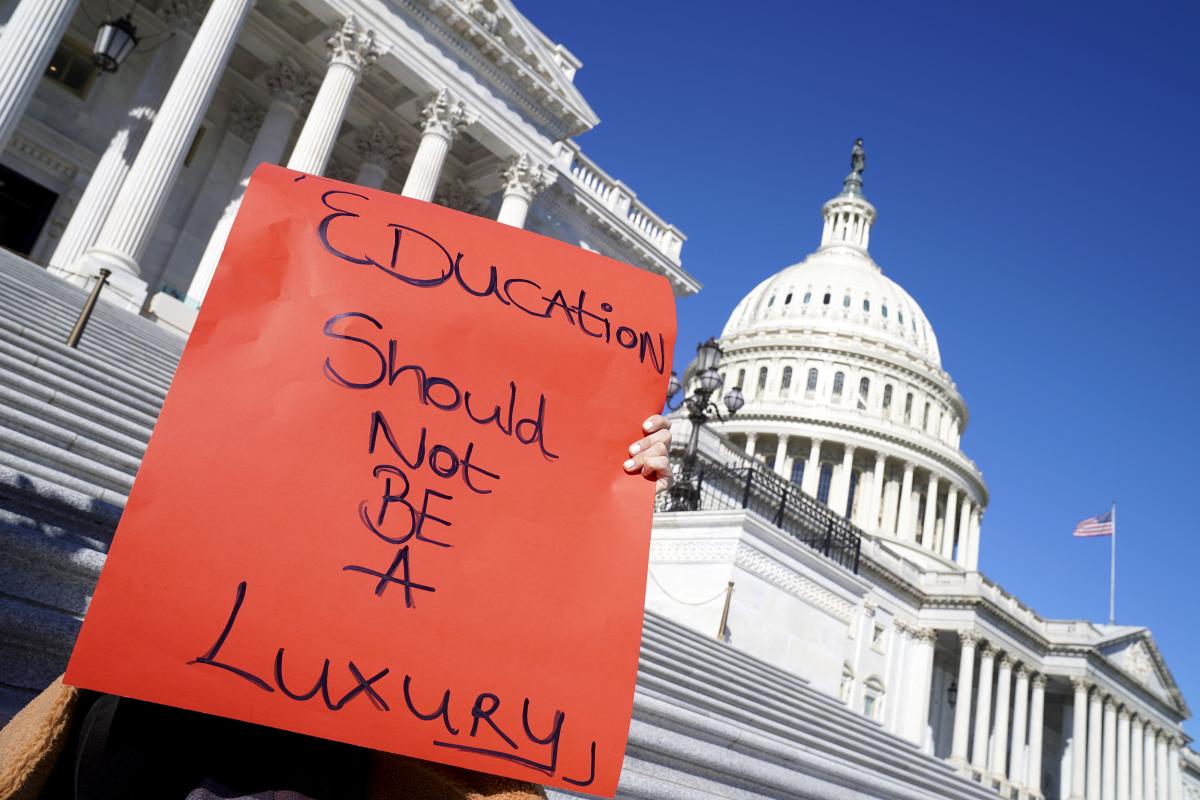 'EDUCAtioN
Should
Not
BE
A
LuxURY,